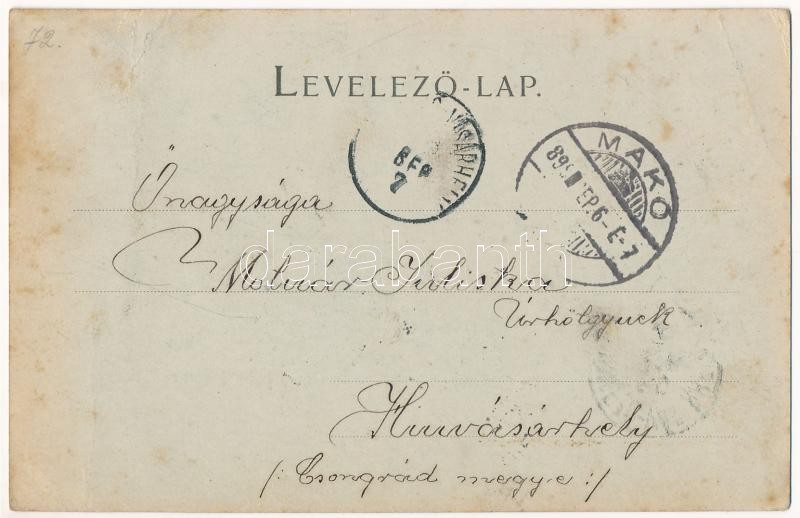 72.
LEVELEZŐ-LAP.
VÁSÁRHELY
SEP
7
MAKÓ
899 SEP. 6-E-7
Őnagysága
Molnár Juliska
Úrhölgynek
darabanth
Hmvásárhely
/: Csongrád megye :/